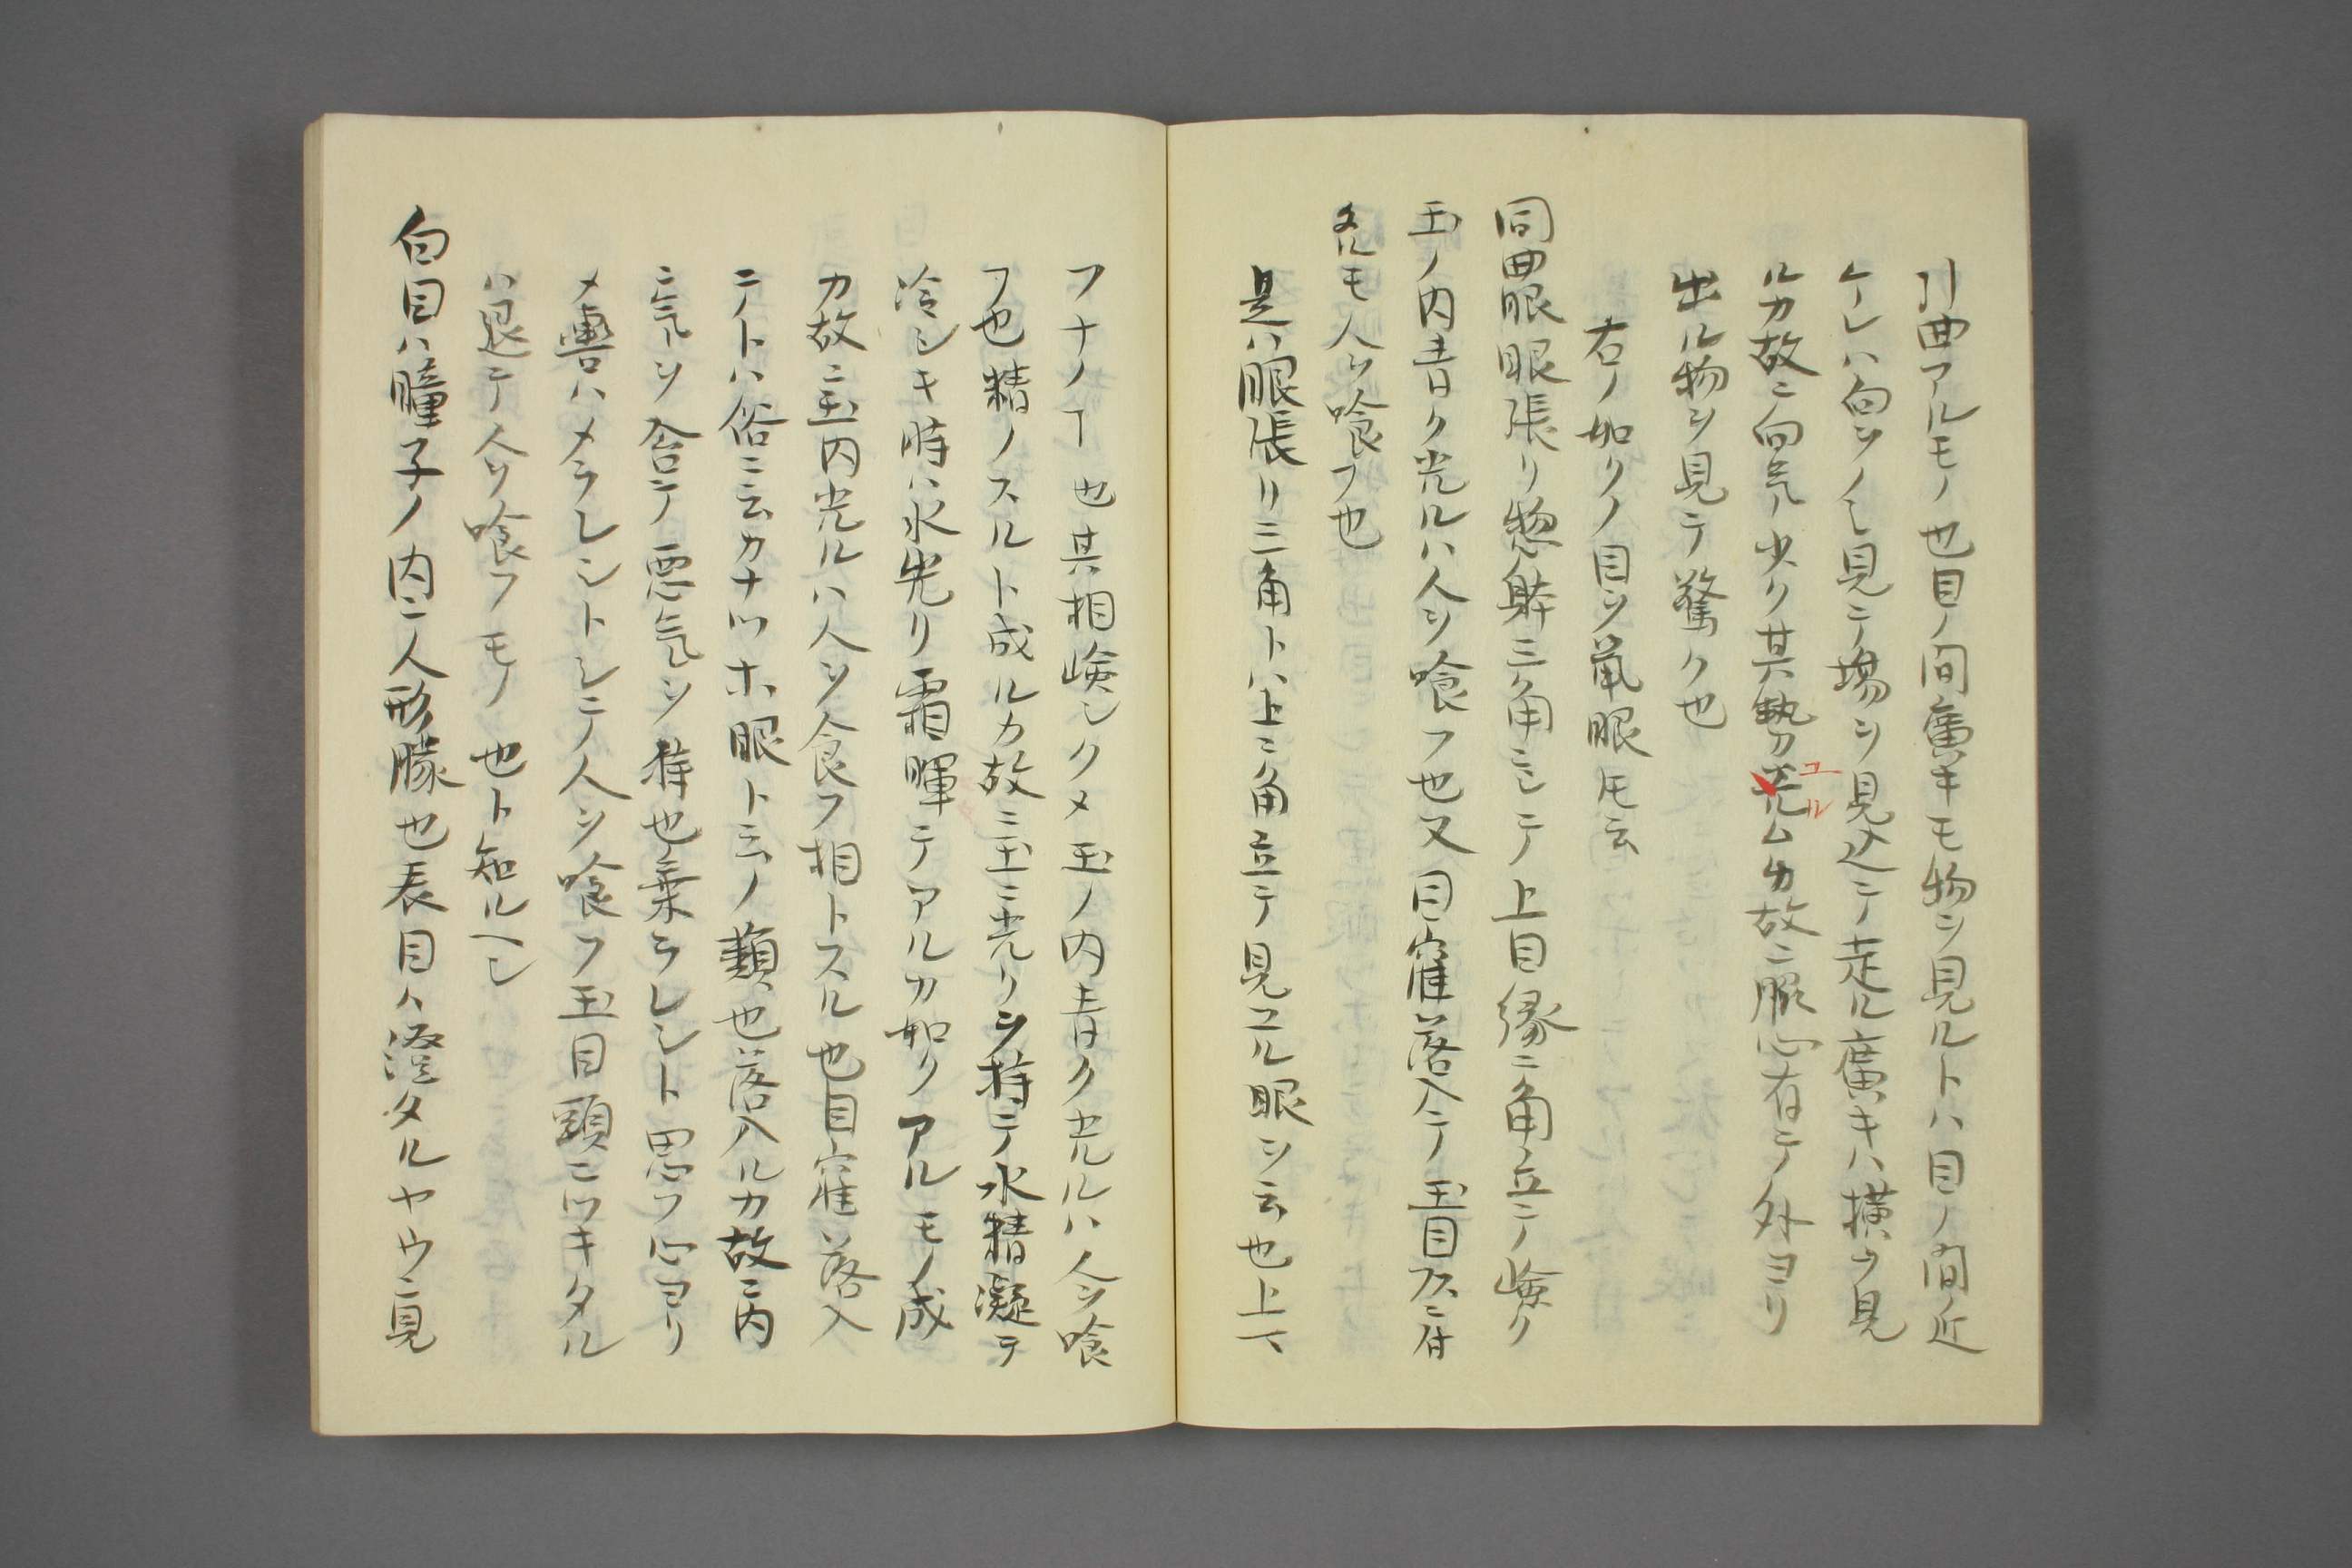 引曲アルモノ也目ノ間廣キモ物ヲ見ルトハ目ノ間近
ケレハ向ヲノミ見テ場ヲ見込テ走ル廣キハ横ヲ見
ルカ故ニ向気少ク其勢カ充ユルムカ故ニ臆心有テ外ヨリ
出ル物ヲ見テ驚ク也
右ノ如クノ目ヲ鼠眼トモ云
同曲眼眼張リ惣躰三角ニシテ上目縁ニ角立テ嶮ク
玉ノ内青ク光ルハ人ヲ喰フ也又目窪落入テ玉目フスニ付
タルモ人ヲ喰フ也
是ハ眼張リ三角トハ上ニ角立テ見ユル眼ヲ云也上下
フナノ丁也其相嶮シクメ玉ノ内青ク光ルハ人ヲ喰
フ也精ノスルト成ルカ故ニ玉ニ光リヲ持テ水精凝テ
冷シキ時ハ氷光リ霜暉テアルカ如クアルモノ成
カ故ニ玉内光ルハ人ヲ食フ相トスル也目窪落入
テトハ俗ニ云カナツホ眼ト云ノ類也落入ルカ故ニ内
ニ気ヲ含テ悪気ヲ持也乗ラレント思フ心ヨリ
メ轡ハメラレントシテ人ヲ喰フ玉目頭ニツキタル
ハ退テ人ヲ喰フモノ也ト知ルヘシ
白目ハ瞳子ノ内ニ人形朦也表目ハ澄タルヤウニ見